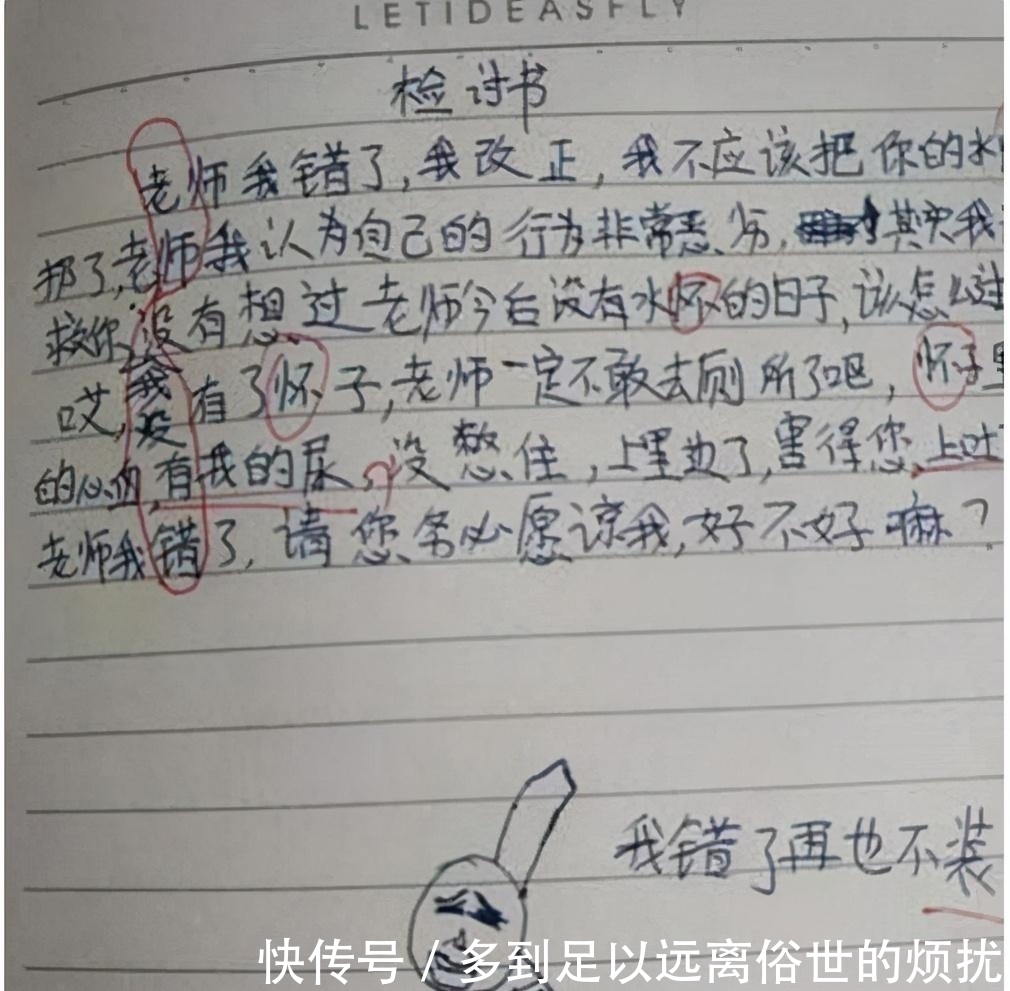 LETIDEASFLY
检讨书
老师我错了,我改正,我不应该把你的水
扔了,老师我认为自己的行为非常恶劣,其实我
救你没有想过老师今后没有水怀的日子,该怎么过
哎,我没有了怀子,老师一定不敢去厕所了吧,怀子里
的心血,有我的尿,没憋住,上里边了,害得您上吐
老师我错了,请您务必愿谅我,好不好嘛?
我错了再也不装
快传号/多到足以远离俗世的烦扰